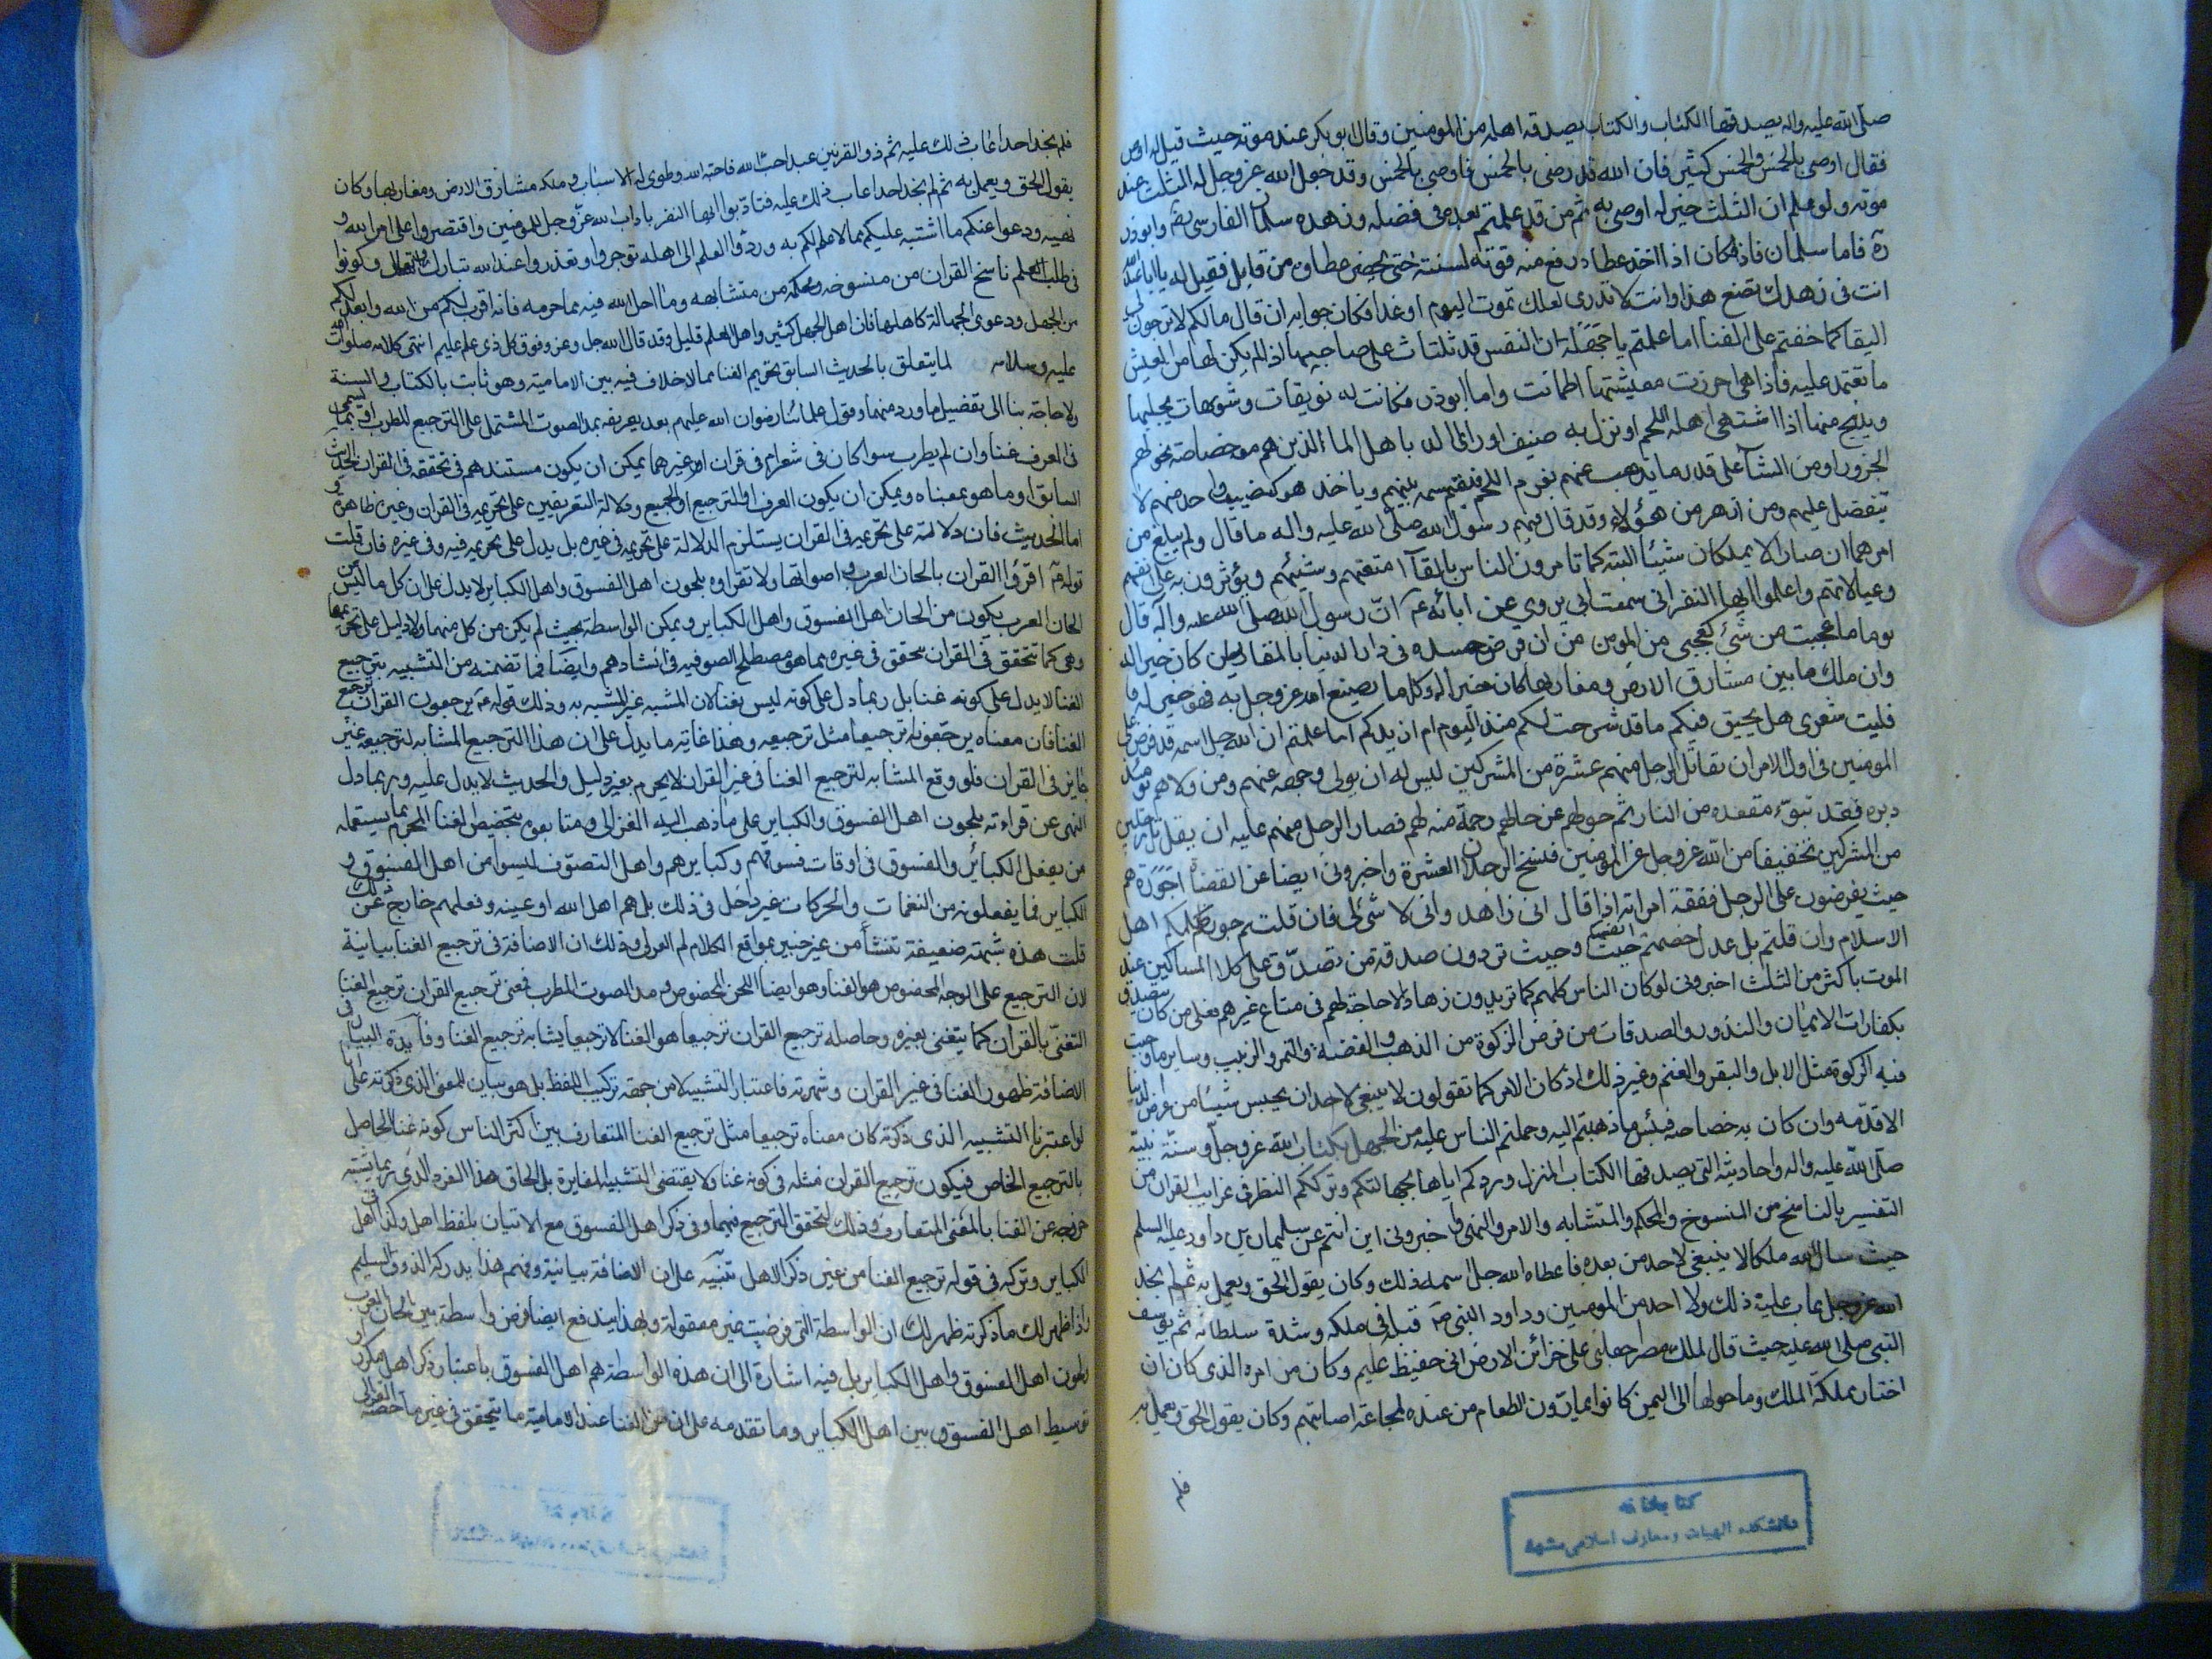 صلى الله عليه واله يصدقها الكتاب والكتاب يصدقه اهله من المومنين وقال ابو بكر عند موته حيث قيل له اوص
فقال اوصي بالخمس والخمس كثير فان الله قد رضى بالخمس فاوصى بالخمس وقد جعل الله عز وجل له الثلث عند
موته ولو علم ان الثلث خير له اوصى به ثم من قد علمتم بعده في فضله وزهده سلمان الفارسي رض وابوذر
ره فاما سلمان فاذا كان اذا اخذ عطاه رفع منه قوته لسنته حتى يحضر عطاؤه من قابل فقيل له يا ابا عبد الله
انت في زهدك تصنع هذا وانت لا تدرى لعلك تموت اليوم او غدا فكان جوابه ان قال مالكم لا ترجون لي
البقا كما خفتم على الفنا اما علمتم يا جهلة ان النفس قد تلتاث على صاحبها اذا لم يكن لها من العيش
ما تعتمد عليه فاذا هي احرزت معيشتها اطمانت واما ابوذر فكانت له نويقات وشويهات يحلبها
ويذبح منها اذا اشتهى اهله اللحم او نزل به ضيف او راى الذ باهل الما الذين هم معه خصاصة نحر لهم
الجزور او من الشآ على قدر ما يذهب عنهم بقرم اللحم فيقسمه بينهم وياخذ هو كنصيب واحد منهم لا
يتفضل عليهم ومن ازهد من هؤلاء وقد قال فيهم رسول الله صلى الله عليه واله ما قال ولم يبلغ من
امرهما ان صارا لا يملكان شيئا البتة كما تامرون الناس بالقآء امتعتهم وشيئهم ويؤثرون به على انفسهم
وعيالاتهم واعلموا ايها النفر انى سمعت ابي يروي عن ابائه ع ان رسول الله صلى الله عليه واله قال
يوما ما عجبت من شئ كعجبي من المومن من ان قرض جسده في دار الدنيا بالمقاريض كان خير اله
وان ملك ما بين مشارق الارض ومغاربها كان خيرا له وكل ما يصنع الله عز وجل به فهو خير له
فليت شعرى هل يحيق فيكم ما قد شرحت لكم منذ اليوم ام ازيدكم اما علمتم ان الله جل اسمه قد فرض على
المومنين في اول الامر ان يقاتل الرجل منهم عشرة من المشركين ليس له ان يولى وجهه عنهم ومن ولاهم يومئذ
دبره فقد تبوء مقعده من النار ثم حولهم عن حالهم رحمة منه لهم فصار الرجل منهم عليه ان يقاتل رجلين
من المشركين تخفيفا من الله عز وجل عن المومنين فنسخ الرجلان العشرة واخبرونى ايضا عن القضاة اجورة هم
حيث يفرضون على الرجل نفقة امراته اذا قال انى زاهد وانى لا شئ لى فان قلتم جور ظلمكم اهل
الاسلام وان قلتم بل عدل خصمتم انفسكم وحيث تردون صدقة من تصدق على المساكين عند
الموت باكثر من الثلث اخبرونى لو كان الناس كلهم كما تريدون زهادا لا حاجة لهم في متاع غيرهم فعلى من كان يتصدق
بكفارات الايمان والنذور والصدقات من فرض الزكوة من الذهب والفضة والتمر والزبيب وساير ما وجبت
فيه الزكوة مثل الابل والبقر والغنم وغير ذلك اذ كان الامر كما تقولون لا ينبغى لاحد ان يحبس شيئا من عرض الدنيا
الا قدمه وان كان به خصاصة فبئس ما ذهبتم اليه وحملتم الناس عليه من الجهل بكتاب الله عز وجل وسنة نبيه
صلى الله عليه واله واحاديثه التي يصدقها الكتاب المنزل وردكم اياها بجهالتكم وترككم النظر في غرايب القران من
التفسير بالناسخ من المنسوخ والمحكم والمتشابه والامر والنهي واخبرونى اين انتم عن سليمان بن داود عليه السلم
حيث سال الله ملكا لا ينبغى لاحد من بعده فاعطاه الله جل اسمه ذلك وكان يقول الحق ويعمل به ثم لم يجد
الله عز وجل عاب عليه ذلك ولا احد من المومنين وداود النبى ص قبله في ملكه وشدة سلطانه ثم يوسف
النبى صلى الله عليه حيث قال لملك مصر اجعلنى على خزائن الارض انى حفيظ عليم وكان من امره الذى كان ان
اختار مملكة الملك وما حولها الى اليمن كانوا يمتارون الطعام من عنده لمجاعة اصابتهم وكان يقول الحق ويعمل به
فلم
كتابخانه
دانشكده الهيات ومعارف اسلامى مشهد
فلم نجد احدا عاب ذلك عليه ثم ذو القرنين عبد احب الله فاحبه الله وطوى له الاسباب وملكه مشارق الارض ومغاربها وكان
يقول الحق ويعمل به ثم لم نجد احدا عاب ذلك عليه فتادبوا ايها النفر باداب الله عز وجل للمومنين واقتصروا على امر الله و
نهيه ودعوا عنكم ما اشتبه عليكم مما لا علم لكم به وردوا العلم الى اهله توجروا وتعذروا عند الله تبارك وتعالى وكونوا
في طلب العلم ناسخ القران من منسوخه ومحكمه من متشابهه وما احل الله فيه مما حرمه فانه اقرب لكم من الله وابعد لكم
من الجهل ودعوى الجهالة لاهلها فان اهل الجهل كثير واهل العلم قليل وقد قال الله جل وعز وفوق كل ذى علم عليم انتهى كلامه صلوات الله
عليه وسلامه لما يتعلق بالحديث السابق تحريم الغنا مما لا خلاف فيه بين الامامية وهو ثابت بالكتاب والسنة
ولا حاجة بنا الى تفصيل ما ورد منهما وقول علمائنا رضوان الله عليهم بعد تعريفه بمد الصوت المشتمل على الترجيع المطرب او بما يسمى
في العرف غنا وان لم يطرب سوا كان في شعر ام في قران ام غيرهما يمكن ان يكون مستندهم في تحققه في القران الحديث
السابق او ما هو بمعناه ويمكن ان يكون العرف او الترجيع او الجميع ودلالة التعريفين على تحريمه في القران وغيره ظاهرة و
اما الحديث فان دلالته على تحريمه في القران يستلزم الدلالة على تحريمه في غيره بل يدل على تحريمه فيه وفي غيره فان قلت
قوله ع اقرؤا القران بالحان العرب واصواتها ولا تقراوه بلحون اهل الفسوق واهل الكباير لا يدل على ان كل ما ليس من
الحان العرب يكون من الحان اهل الفسوق واهل الكباير ويمكن الواسطة بحيث لم يكن من كل منهما ولا دليل على تحريمها
وهى كما تتحقق في القران تتحقق في غيره مما هو مصطلح الصوفيه في انشادهم وايضا فما تضمنه من التشبيه بترجيع
الغنا لا يدل على كونه غنا بل ربما دل على كونه ليس بغنا لان المشبه غير المشبه به وذلك قوله ع يرجعون القران ترجيع
الغنا فان معناه يرجعونه ترجيعا مثل ترجيعه وهذا غاية ما يدل على ان هذا الترجيع المشابه لترجيعه غير
جايز في القران فلو وقع المشابه لترجيع الغنا في غير القران لا يحرم بغير دليل والحديث لا يدل عليه وربما دل
النهى عن قراءته بلحون اهل الفسوق والكباير على ما ذهب اليه الغزالى ومتابعوه بتخصيص الغنا المحرم بما يستعمله
من يفعل الكبائر والفسوق في اوقات فسوقهم وكبايرهم واهل التصوف ليسوا من اهل الفسوق و
الكباير فما يفعلونه من النغمات والحركات غير داخل في ذلك بل هم اهل الله او عينه وفعلهم خارج عن ذلك
قلت هذه شبهة ضعيفة تنشأ من غير خبير بمواقع الكلام لم المولى وذلك ان الاضافة في ترجيع الغنا بيانية
لان الترجيع على الوجه المخصوص هو الغنا وهو ايضا اللحن المخصوص ومد الصوت المطرب فمعنى ترجيع القران ترجيع الغنا
التغنى بالقران كما يتغنى بغيره وحاصله ترجيع القران ترجيعا هو الغنا لا ترجيعا يشابه ترجيع الغنا وفائدة البيان في
الاضافة ظهور الغنا في غير القران وشهرته فاعتبار التشبيه لا من جهة تركيب اللفظ بل هو بيان للمعنى الذى ذكرته على انا
لو اعتبرنا التشبيه الذى ذكرته كان معناه ترجيعا مثل ترجيع الغنا المتعارف بين اكثر الناس كونه غنا الحاصل
بالترجيع الخاص فيكون ترجيع القران مثله في كونه غنا ولا يقتضى التشبيه المغايرة بل الحاق هذا الفرد الذى ربما يشتبه
خروجه عن الغنا بالمعنى المتعارف وذلك لتحقق الترجيع فيهما وفي ذكر اهل الفسوق مع الاتيان بلفظ اهل وكذا في اهل
الكباير وتركه في قوله ترجيع الغنا من غير ذكر الاهل تنبيه على ان الاضافة بيانية وفهم هذا يدركه الذوق السليم
واذا ظهر لك ما ذكرته ظهر لك ان الواسطة التي فرضت غير معقولة وبهذا يندفع ايضا فرض واسطة بين الحان العرب و
لحون اهل الفسوق واهل الكباير بل فيه اشارة الى ان هذه الواسطة هم اهل الفسوق باعتبار ذكر اهل مكرر و
توسيط اهل الفسوق بين اهل الكباير وما تقدمه على ان من الغنا عند الامامية ما يتحقق في غير ما خصه الغزالى